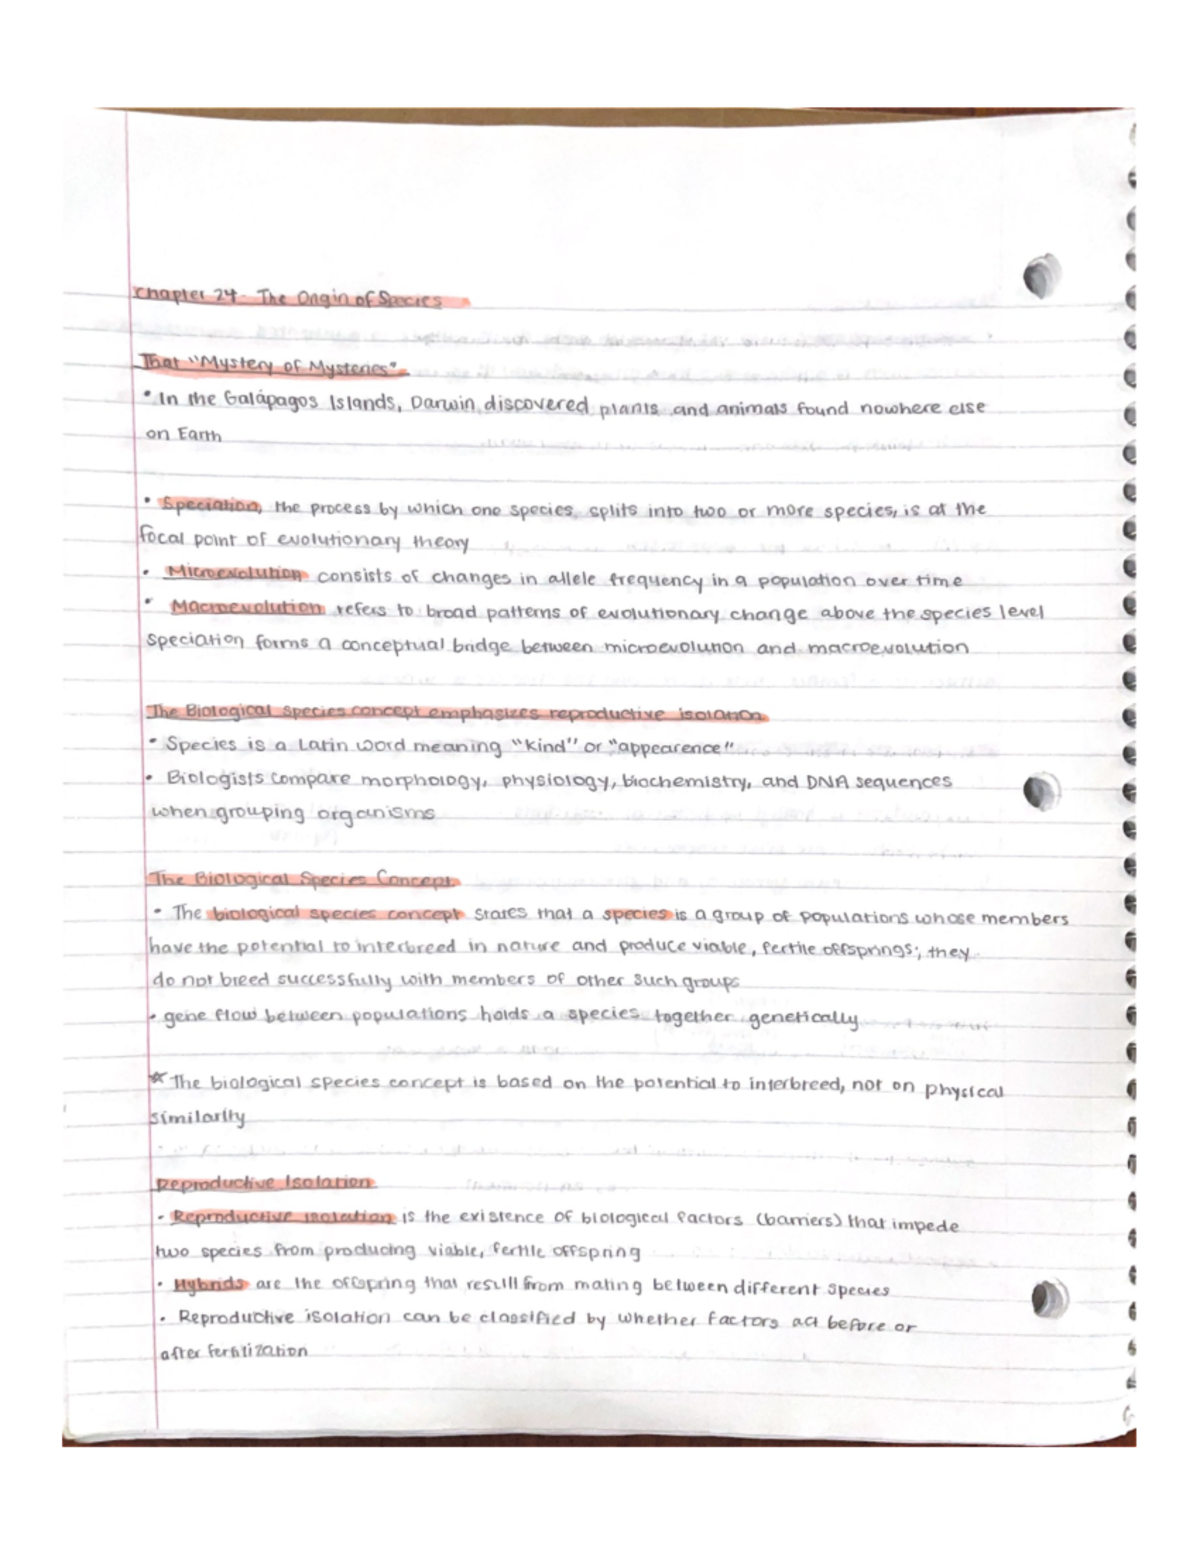 Chapter 24- The Origin of Species
That "Mystery of Mysteries"
• In the Galápagos Islands, Darwin discovered plants and animals found nowhere else
on Earth
• Speciation, the process by which one species splits into two or more species, is at the
focal point of evolutionary theory
• Microevolution consists of changes in allele frequency in a population over time
• Macroevolution refers to broad patterns of evolutionary change above the species level
speciation forms a conceptual bridge between microevolution and macroevolution
The Biological species concept emphasizes reproductive isolation
• Species is a Latin word meaning "kind" or "appearence"
• Biologists compare morphology, physiology, biochemistry, and DNA sequences
when grouping organisms
The Biological Species Concept
• The biological species concept states that a species is a group of populations whose members
have the potential to interbreed in nature and produce viable, fertile offsprings; they
do not breed successfully with members of other such groups
• gene flow between populations holds a species together genetically
☆ The biological species concept is based on the potential to interbreed, not on physical
similarity
Reproductive Isolation
• Reproductive isolation is the existence of biological factors (barriers) that impede
two species from producing viable, fertile offspring
• Hybrids are the offspring that result from mating between different species
• Reproductive isolation can be classified by whether factors act before or
after fertilization